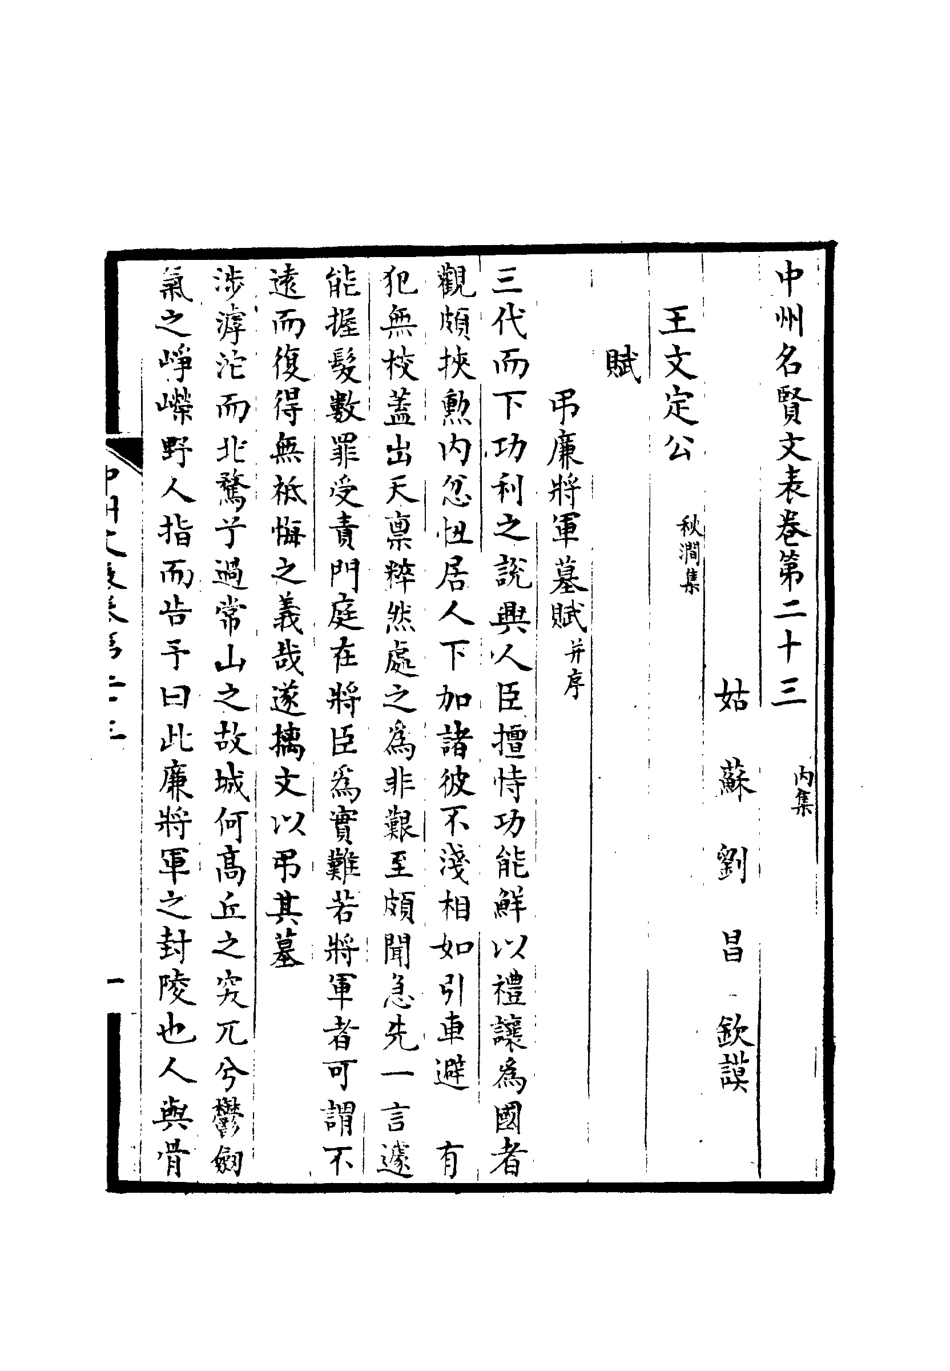 中州名賢文表卷第二十三　內集
姑蘇劉昌欽謨
王文定公　秋澗集
賦
弔廉將軍墓賦并序
三代而下功利之說興人臣擅恃功能鮮以禮讓為國者
觀頗挾勲內忿忸居人下加諸彼不淺相如引車避　有
犯無校蓋出天禀粹然處之為非艱至頗聞急先一言遽
能握髮數罪受責門庭在將臣為實難若將軍者可謂不
遠而復得無祗悔之義哉遂摛文以弔其墓
涉滹沱而北騖兮過常山之故城何高丘之突兀兮鬱劒
氣之崢嶸野人指而告予曰此廉將軍之封陵也人與骨
中州文表卷第二十三
一